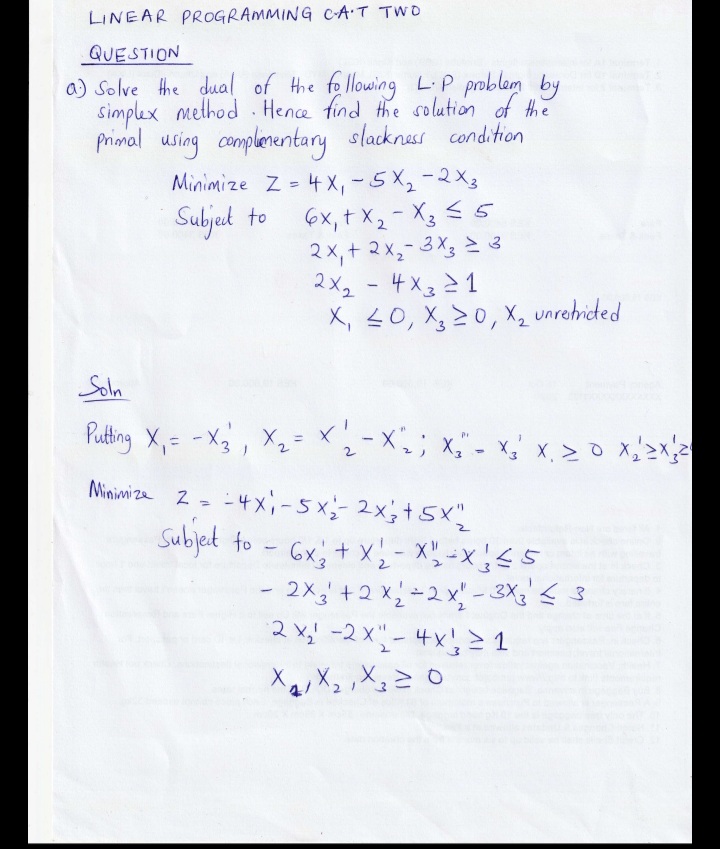 LINEAR PROGRAMMING C.A.T TWO
QUESTION
a.) Solve the dual of the following L.P problem by
simplex method. Hence find the solution of the
primal using complimentary slackness condition
Minimize Z = 4X₁ - 5X₂ - 2X₃
Subject to 6X₁ + X₂ - X₃ ≤ 5
2X₁ + 2X₂ - 3X₃ ≥ 3
2X₂ - 4X₃ ≥ 1
X₁ ≤ 0, X₃ ≥ 0, X₂ unrestricted
Soln
Putting X₁ = -X₃', X₂ = X₂' - X₂''; X₃'' = X₃' X. ≥ 0 X₂' ≥ X₃' ≥
Minimize Z = -4X₁' - 5X₂' - 2X₃' + 5X₂''
Subject to - 6X₃' + X₂' - X₂'' - X₃' ≤ 5
- 2X₃' + 2X₂' - 2X₂'' - 3X₃' ≤ 3
2X₂' - 2X₂'' - 4X₃' ≥ 1
X₁, X₂, X₃ ≥ 0